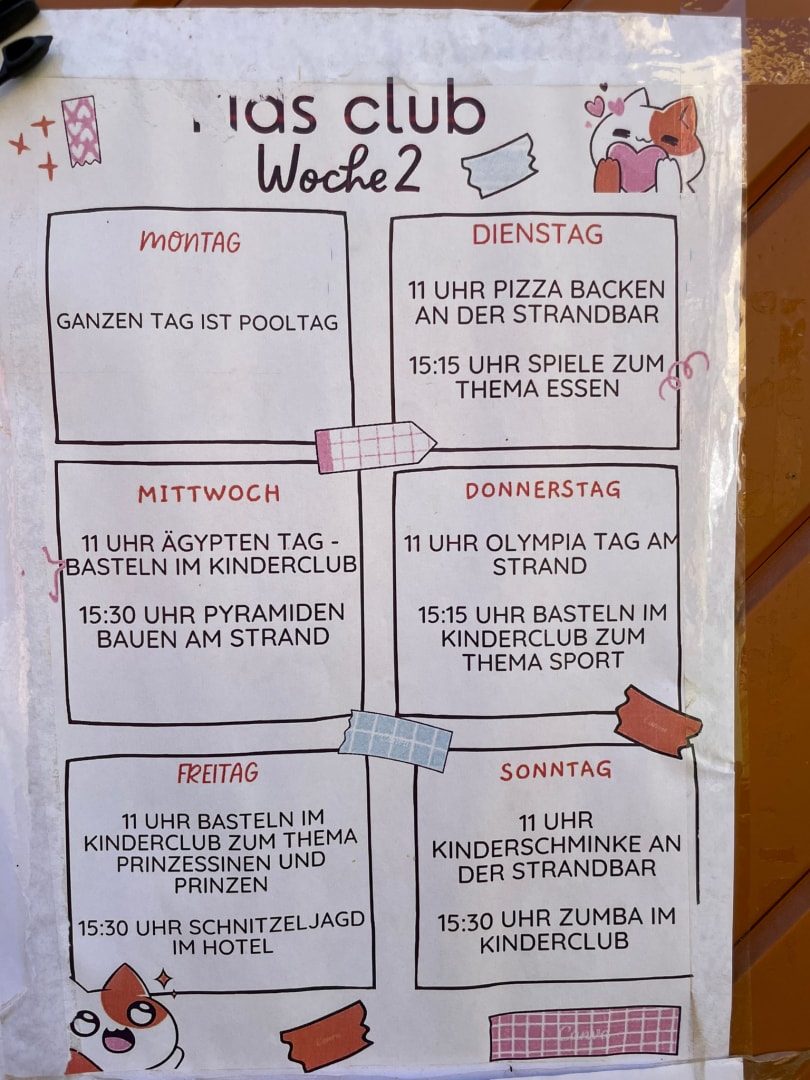 Kids club
Woche 2
MONTAG
GANZEN TAG IST POOLTAG
DIENSTAG
11 UHR PIZZA BACKEN
AN DER STRANDBAR
15:15 UHR SPIELE ZUM
THEMA ESSEN
MITTWOCH
11 UHR ÄGYPTEN TAG -
BASTELN IM KINDERCLUB
15:30 UHR PYRAMIDEN
BAUEN AM STRAND
DONNERSTAG
11 UHR OLYMPIA TAG AM
STRAND
15:15 UHR BASTELN IM
KINDERCLUB ZUM
THEMA SPORT
FREITAG
11 UHR BASTELN IM
KINDERCLUB ZUM THEMA
PRINZESSINEN UND
PRINZEN
15:30 UHR SCHNITZELJAGD
IM HOTEL
SONNTAG
11 UHR
KINDERSCHMINKE AN
DER STRANDBAR
15:30 UHR ZUMBA IM
KINDERCLUB
Canva
Canva
Canva